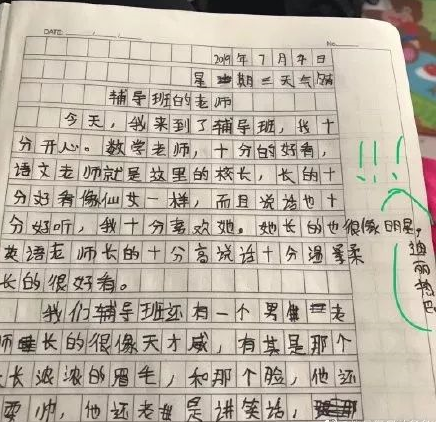 DATE
No.
2019年7月7日
星期二天气
辅导班的老师
今天，我来到了辅导班，我十
分开心。数学老师，十分的好看，
语文老师就是故里的校长，长的十
分好看像仙女一样，而且说话也十
分好听，我十分喜欢她。她长的也很像明星，迪丽热巴
英语老师长的十分高说话十分温柔
长的很好看。
我们辅导班还有一个男老
师长的很像天才威，有其是那个
长浓浓的眉毛，和那个脸，他还
耍帅，他还老是讲笑话，